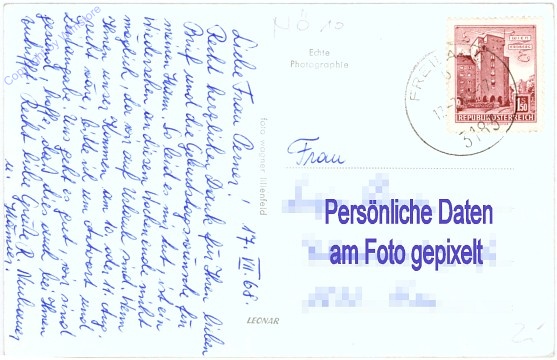 NÖ 10
Echte
Photographie
WIEN
1.50
REPUBLIK ÖSTERREICH
3183
Frau
Persönliche Daten
am Foto gepixelt
foto wagner lilienfeld
LEONAR
17. VII. 68
Liebe Frau Perner!
Recht herzlichen Dank für Ihren lieben
Brief und die Geburtstagswünsche für
meinen Mann. So leid es mir tut, ist ein
Wiedersehen an diesem Wochenende nicht
möglich, da wir auf Urlaub sind. Wenn
Ihnen unser Kommen am 10. oder 11. Aug.
recht wäre, bitte ich um Antwort und
Uns geht es gut, wir sind
gesund, hoffe, daß dies auch bei Ihnen
zutrifft. Recht liebe Grüße R. Neubauer
u. Männer.